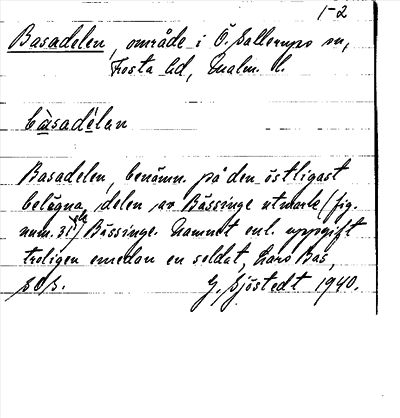 1-2
Basadelen, område i Ö. Sallerups sn,
Frosta hd, Malm. l.
bàsadélan
Basadelen, benämn. på den östligast
belägna delen av Bässinge utmark (fig.
num. 31) Bässinge. Namnet enl. uppgift
troligen emedan en soldat, Bas,
G. Sjöstedt 1940.